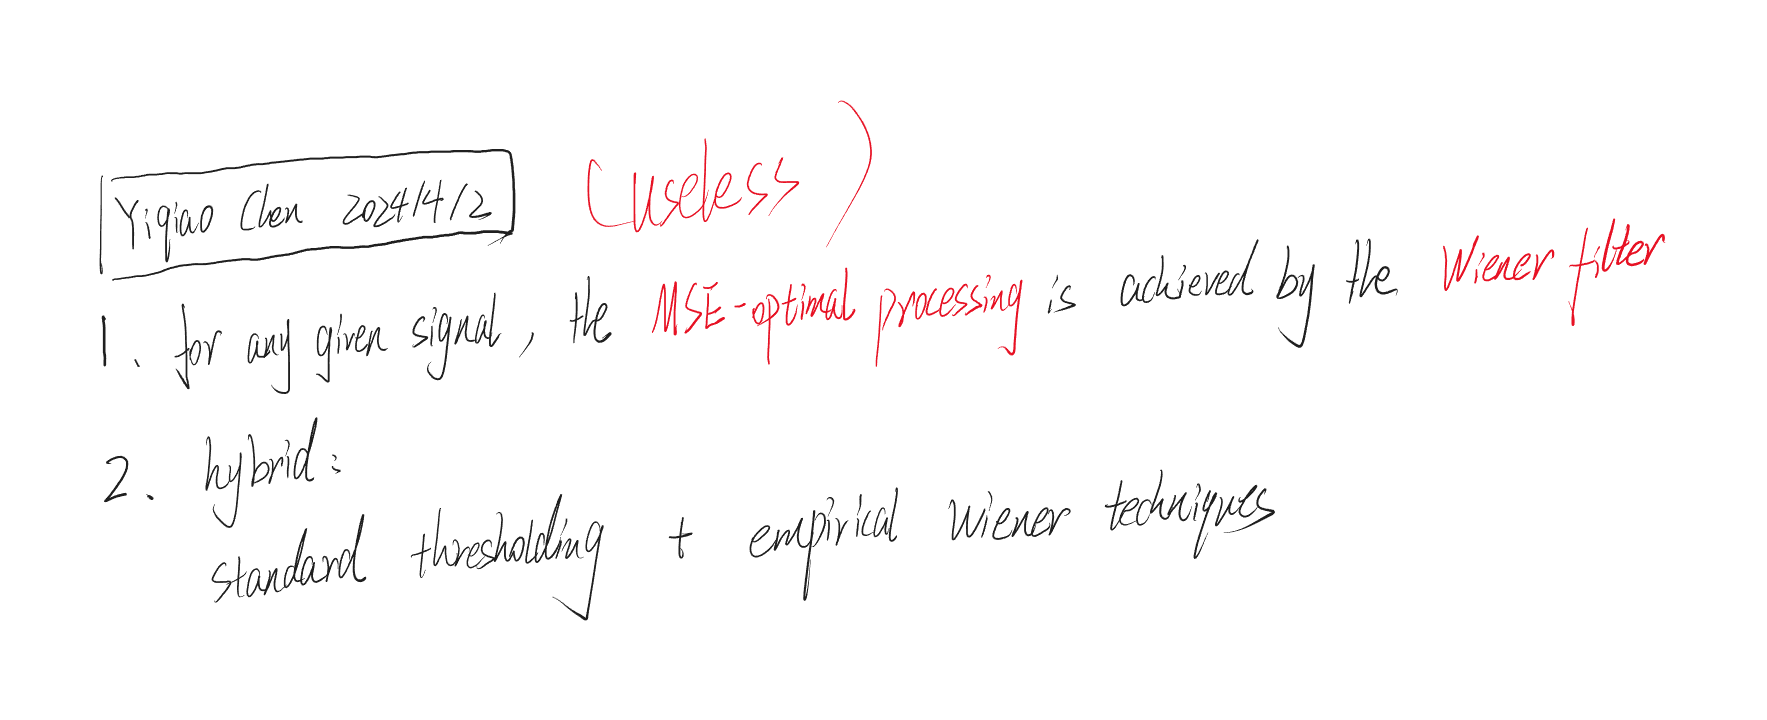 Yiqiao Chen 2024/4/2 (useless)
1. for any given signal, the MSE-optimal processing is achieved by the Wiener filter
2. hybrid:
standard thresholding + empirical Wiener techniques